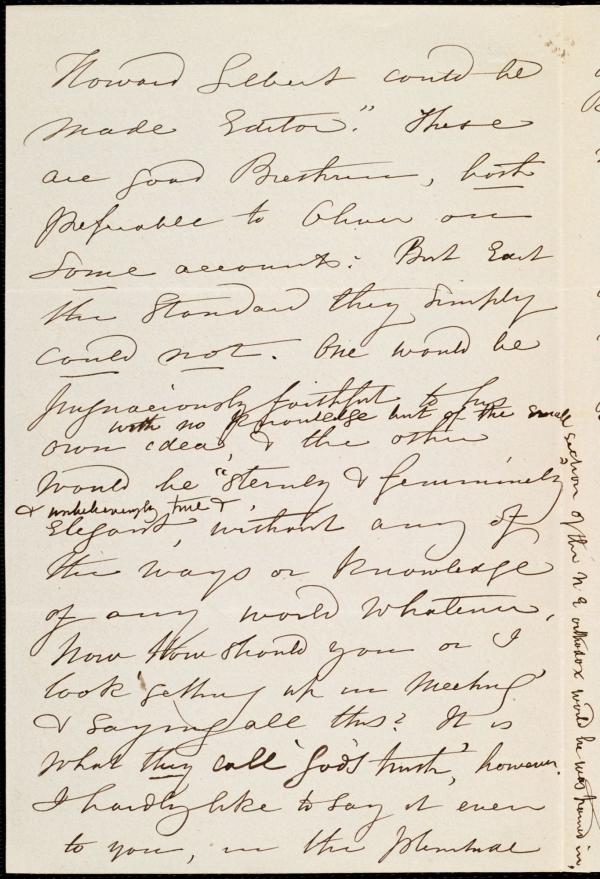 Howard Gilbert could be
made Editor." These
are good Brethren, both
preferable to Oliver on
some accounts: But Edit
the Standard they simply
could not. One would be
pugnaciously faithful to his
with no knowledge but of the small
own idea, & the other
would be "sternly & femininely
& unbelievingly true &
Elegant", without any of
the ways or knowledge
of any world whatever.
Now How should you or I
look 'getting up in meeting'
& saying all this? It is
what they call 'God's truth', however.
I hardly like to say it even
to you, in the plenitude
section of the N E orthodox world he was trained in,